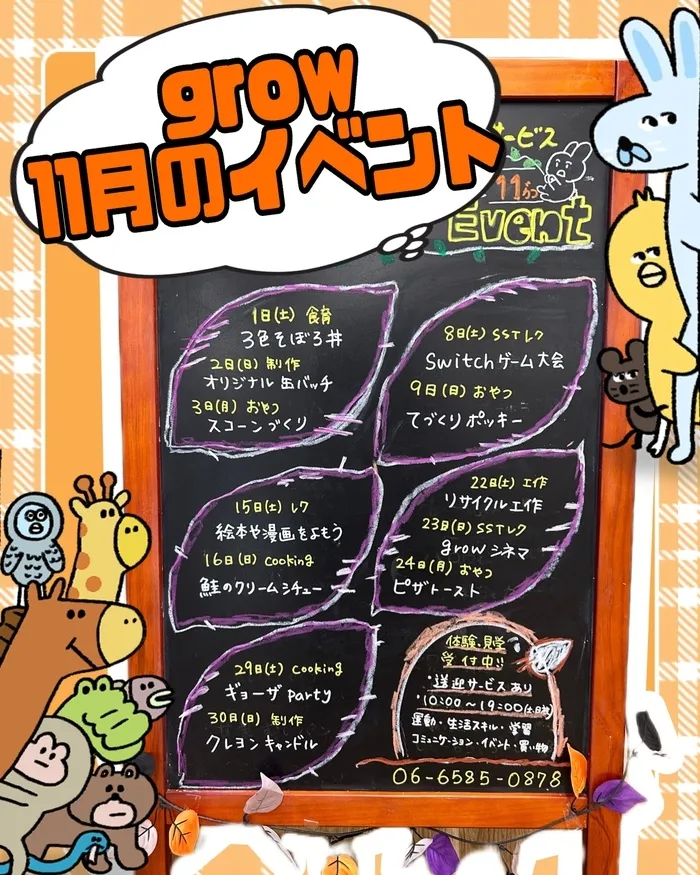 grow
11月のイベント
サービス
11がつ
Event
1日(土) 食育
3色そぼろ丼
2日(日) 制作
オリジナル缶バッチ
3日(月) おやつ
スコーンづくり
8日(土) SSTレク
Switchゲーム大会
9日(日) おやつ
てづくりポッキー
15日(土) レク
絵本や漫画をよもう
16日(日) cooking
鮭のクリームシチュー
22日(土) 工作
リサイクル工作
23日(日) SSTレク
growシネマ
24日(月) おやつ
ピザトースト
29日(土) cooking
ギョーザparty
30日(日) 制作
クレヨンキャンドル
体験・見学
受付中!!
・送迎サービスあり
・10:00〜19:00(土日祝)
運動・生活スキル・学習
コミュニケーション・イベント・買い物
06-6585-0878